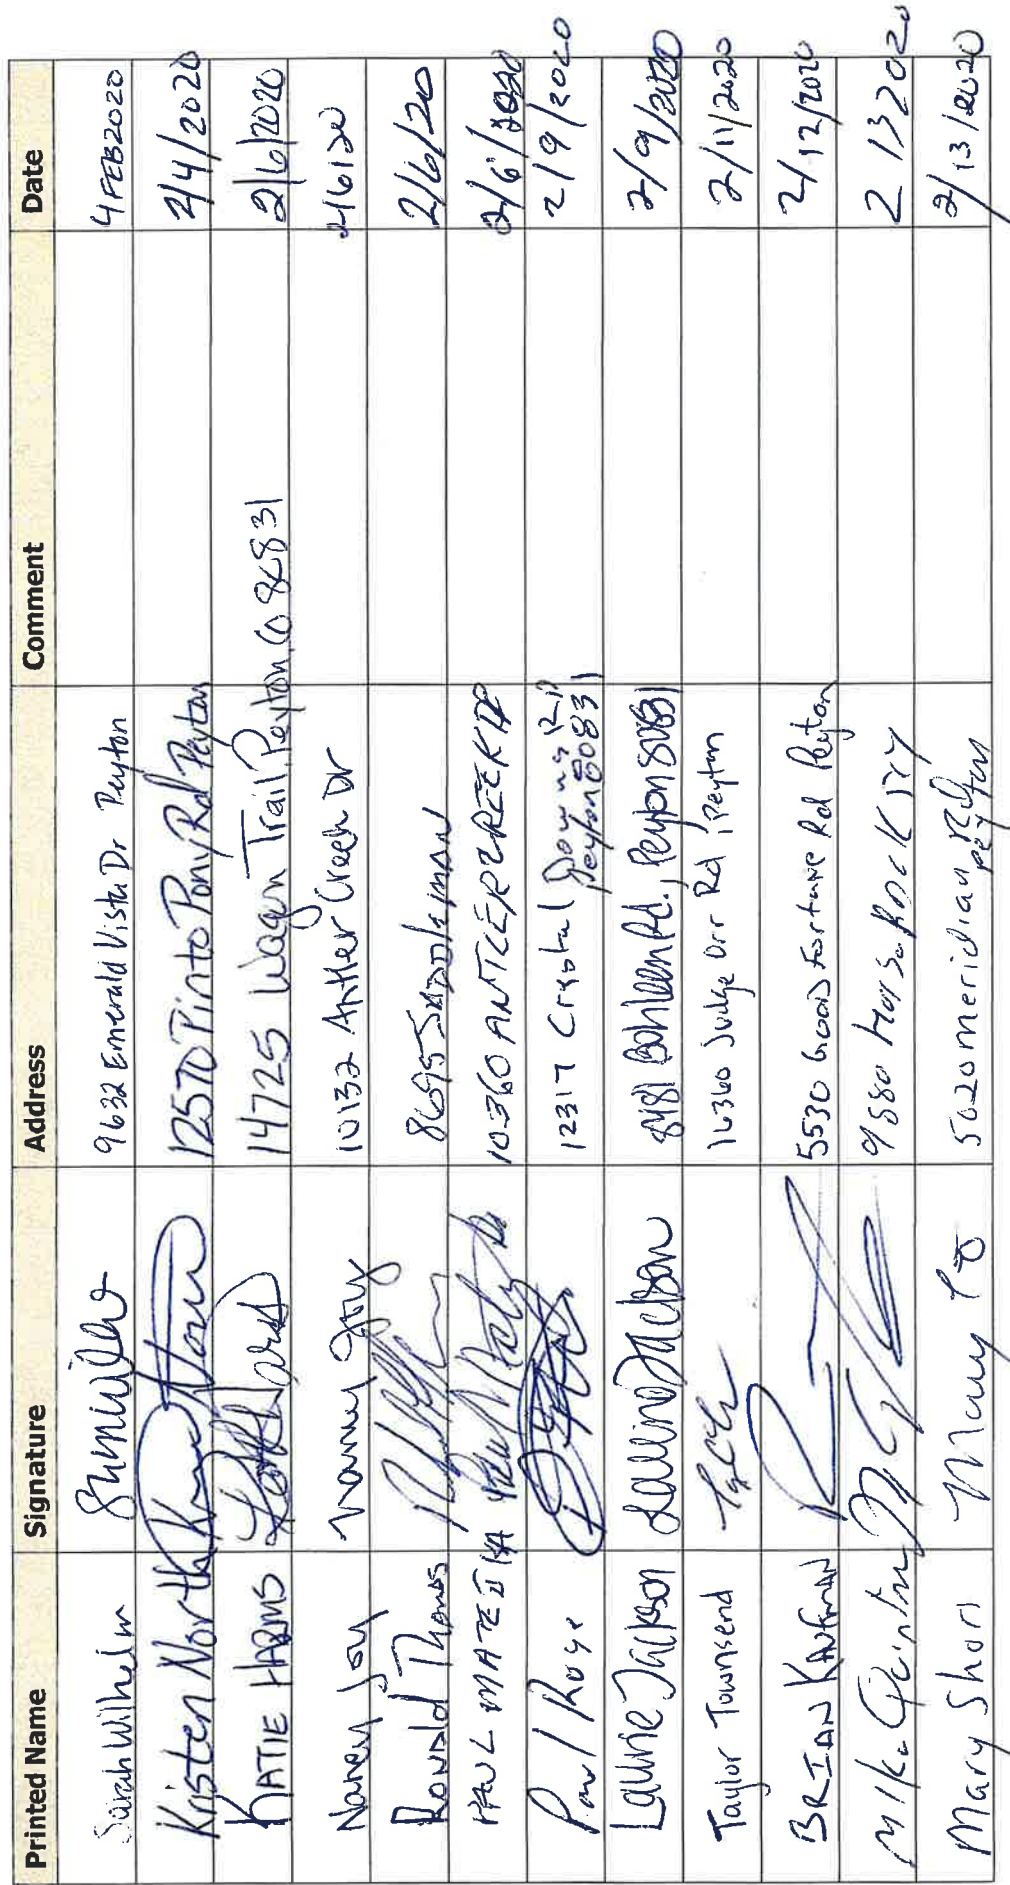 Printed Name Signature Address Comment Date
Sarah Wilhelm 9632 Emerald Vista Dr Peyton 4FEB2020
Kristen North 12570 Pinto Pony Rd Peyton 2/4/2020
KATIE HARMS 14725 Wagon Trail, Peyton, CO 80831 2/6/2020
Nancy Joy Nancy Joy 10132 Antler Creek Dr 2/6/20
RONALD Thomas 8695 2/6/20
PAUL MATEJKA 10360 ANTLER CREEK DR 2/6/2020
Paul Roye 12317 Crystal Downs Rd 2/9/2020
Peyton 80831
Laurie Jackson Laurie Jackson 8481 Bohleen Rd., Peyton 80831 2/9/2020
Taylor Townsend 16360 Judge Orr Rd, Peyton 2/11/2020
BRIAN KAUFMAN 5530 Good Fortune Rd Peyton 2/12/2020
Mike 2 13 2020
Mary Short Mary 5020 meridian Rd 2/13/2020
peyton